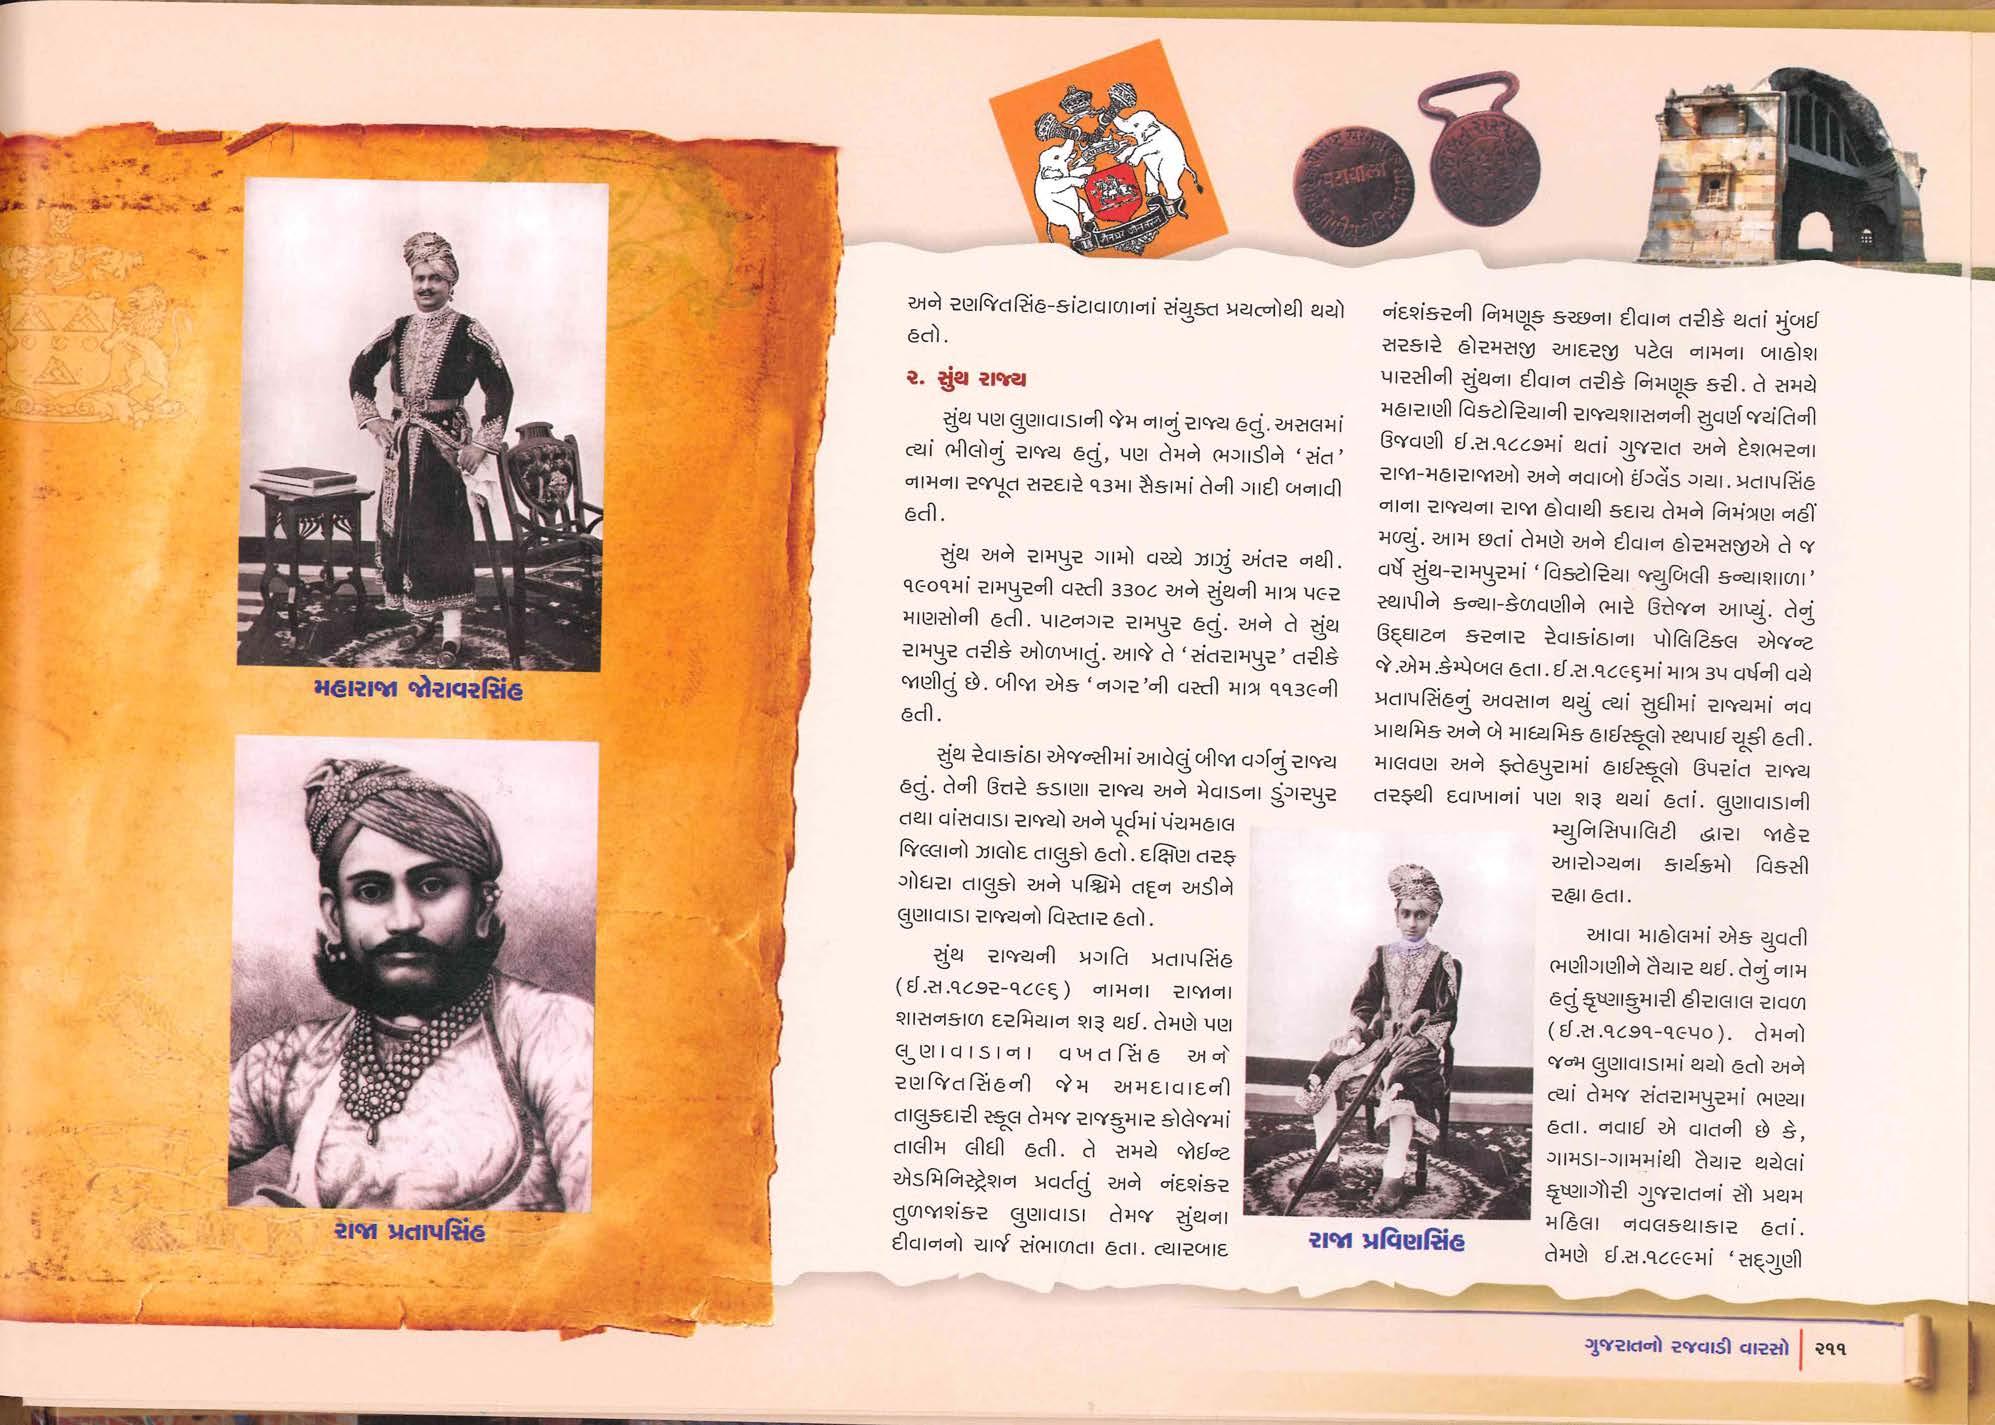 મહારાજા જોરાવરસિંહ
રાજા પ્રતાપસિંહ
અને રણજિતસિંહ-કાંટાવાળાનાં સંયુક્ત પ્રયત્નોથી થયો
હતો.
૨. સુંથ રાજ્ય
સુંથ પણ લુણાવાડાની જેમ નાનું રાજ્ય હતું. અસલમાં
ત્યાં ભીલોનું રાજ્ય હતું, પણ તેમને ભગાડીને ‘સંત’
નામના રજપૂત સરદારે ૧૩મા સૈકામાં તેની ગાદી બનાવી
હતી.
સુંથ અને રામપુર ગામો વચ્ચે ઝાઝું અંતર નથી.
૧૯૦૧માં રામપુરની વસ્તી ૩૩૦૮ અને સુંથની માત્ર ૫૯૨
માણસોની હતી. પાટનગર રામપુર હતું. અને તે સુંથ
રામપુર તરીકે ઓળખાતું. આજે તે ‘સંતરામપુર’ તરીકે
જાણીતું છે. બીજા એક ‘નગર’ની વસ્તી માત્ર ૧૧૩૯ની
હતી.
સુંથ રેવાકાંઠા એજન્સીમાં આવેલું બીજા વર્ગનું રાજ્ય
હતું. તેની ઉત્તરે કડાણા રાજ્ય અને મેવાડના ડુંગરપુર
તથા વાંસવાડા રાજ્યો અને પૂર્વમાં પંચમહાલ
જિલ્લાનો ઝાલોદ તાલુકો હતો. દક્ષિણ તરફ
ગોધરા તાલુકો અને પશ્ચિમે તદ્દન અડીને
લુણાવાડા રાજ્યનો વિસ્તાર હતો.
સુંથ રાજ્યની પ્રગતિ પ્રતાપસિંહ
(ઈ.સ.૧૮૭૨-૧૮૯૬) નામના રાજાના
શાસનકાળ દરમિયાન શરૂ થઈ. તેમણે પણ
લુણાવાડાના વખતસિંહ અને
રણજિતસિંહની જેમ અમદાવાદની
તાલુકદારી સ્કૂલ તેમજ રાજકુમાર કોલેજમાં
તાલીમ લીધી હતી. તે સમયે જોઈન્ટ
એડમિનિસ્ટ્રેશન પ્રવર્તતું અને નંદશંકર
તુળજાશંકર લુણાવાડા તેમજ સુંથના
દીવાનનો ચાર્જ સંભાળતા હતા. ત્યારબાદ
નંદશંકરની નિમણૂક કચ્છના દીવાન તરીકે થતાં મુંબઈ
સરકારે હોરમસજી આદરજી પટેલ નામના બાહોશ
પારસીની સુંથના દીવાન તરીકે નિમણૂક કરી. તે સમયે
મહારાણી વિક્ટોરિયાની રાજ્યશાસનની સુવર્ણ જયંતિની
ઉજવણી ઈ.સ.૧૮૮૭માં થતાં ગુજરાત અને દેશભરના
રાજા-મહારાજાઓ અને નવાબો ઈંગ્લેંડ ગયા. પ્રતાપસિંહ
નાના રાજ્યના રાજા હોવાથી કદાચ તેમને નિમંત્રણ નહીં
મળ્યું. આમ છતાં તેમણે અને દીવાન હોરમસજીએ તે જ
વર્ષે સુંથ-રામપુરમાં ‘વિક્ટોરિયા જ્યુબિલી કન્યાશાળા’
સ્થાપીને કન્યા-કેળવણીને ભારે ઉત્તેજન આપ્યું. તેનું
ઉદ્ઘાટન કરનાર રેવાકાંઠાના પોલિટિકલ એજન્ટ
જે.એમ.કેમ્પેબલ હતા. ઈ.સ.૧૮૯૬માં માત્ર ૩૫ વર્ષની વયે
પ્રતાપસિંહનું અવસાન થયું ત્યાં સુધીમાં રાજ્યમાં નવ
પ્રાથમિક અને બે માધ્યમિક હાઈસ્કૂલો સ્થપાઈ ચૂકી હતી.
માલવણ અને ફતેહપુરામાં હાઈસ્કૂલો ઉપરાંત રાજ્ય
તરફથી દવાખાનાં પણ શરૂ થયાં હતાં. લુણાવાડાની
મ્યુનિસિપાલિટી દ્વારા જાહેર
આરોગ્યના કાર્યક્રમો વિકસી
રહ્યા હતા.
આવા માહોલમાં એક યુવતી
ભણીગણીને તૈયાર થઈ. તેનું નામ
હતું કૃષ્ણાકુમારી હીરાલાલ રાવળ
(ઈ.સ.૧૮૭૧-૧૯૫૦). તેમનો
જન્મ લુણાવાડામાં થયો હતો અને
ત્યાં તેમજ સંતરામપુરમાં ભણ્યા
હતા. નવાઈ એ વાતની છે કે,
ગામડા-ગામમાંથી તૈયાર થયેલાં
કૃષ્ણાગૌરી ગુજરાતનાં સૌ પ્રથમ
મહિલા નવલકથાકાર હતાં.
તેમણે ઈ.સ.૧૮૯૯માં ‘સદ્ગુણી
રાજા પ્રવિણસિંહ
ગુજરાતનો રજવાડી વારસો | ૨૧૧